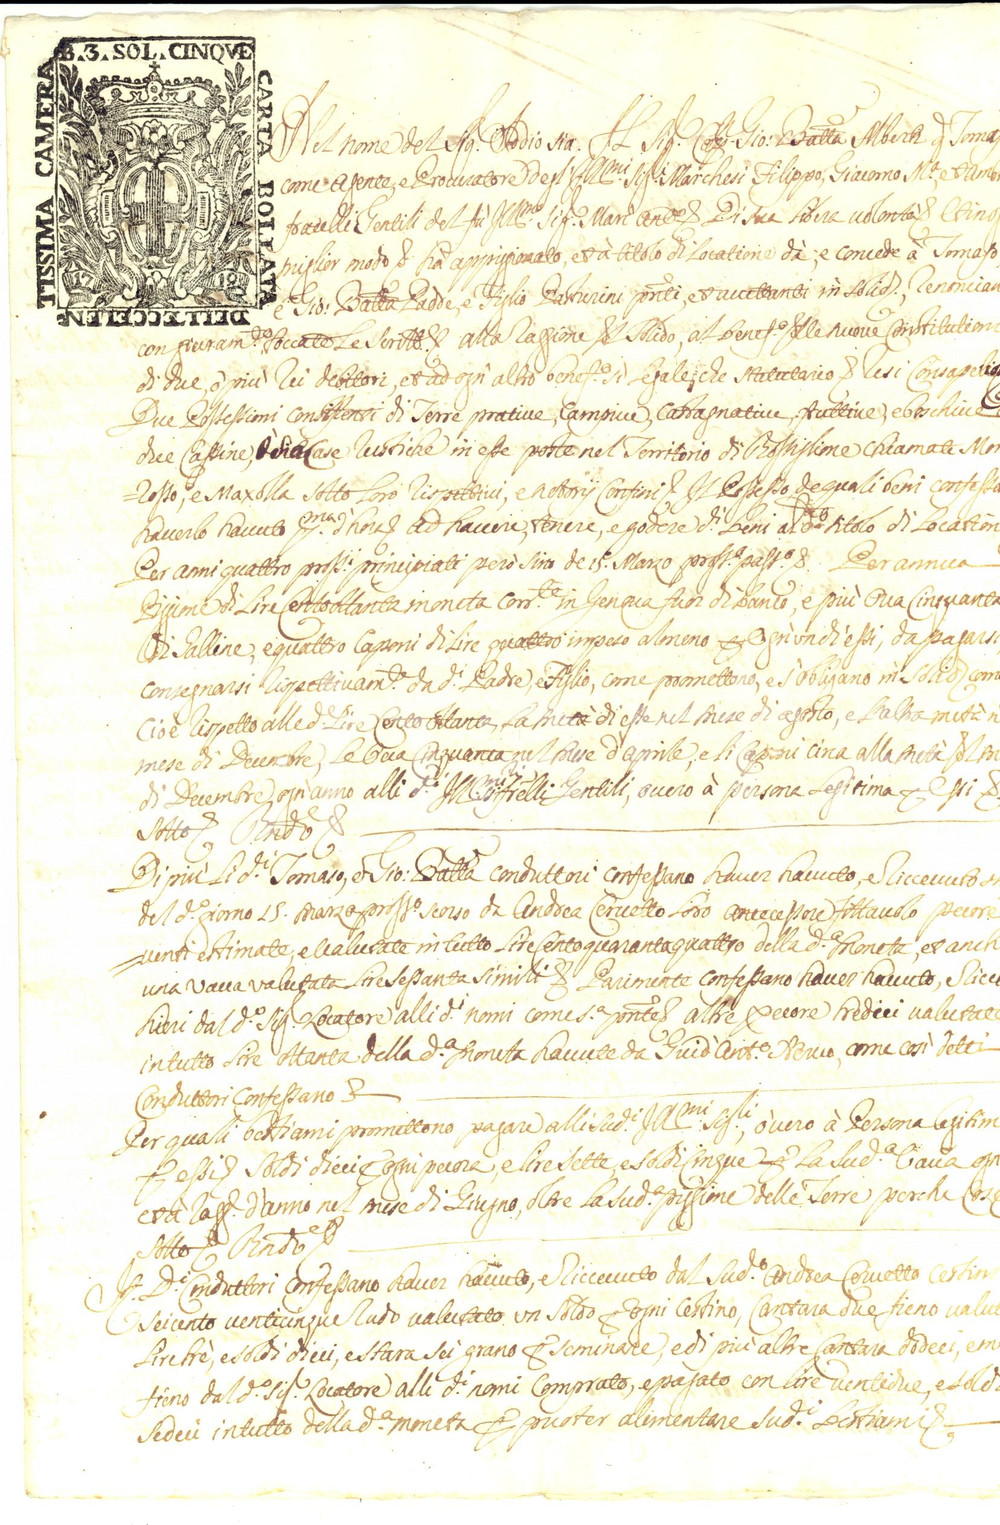 B.3. SOL. CINQVE
CARTA BOLLATA
DELL'ECCELEN
TISSIMA CAMERA
17 19
Nel nome del Sig.r Iddio sia. Il Sig.r Gio: Batta Alberti q. Tomaso
come agente, e Procuratore degl'Ill.mi Sig.ri Marchesi Filippo, Giacomo M.a, et Ambr
fratelli Gentili del fù Ill.mo Sig.r Marc'  Di sua libera volontà & et in og
miglior modo & hà appiggionato, et à titolo di Locatione dà, e concede à Tomaso
e Gio: Batta Padre, e Figlio Pasturini pnti, et accettanti in solid., renoncian
con giuram.to toccate le Scritt.e & alla ragione & Solido, al benef.o delle nuove Constitutioni
di due, ò più rei debitori, et ad ogni altro benef.o sì legale, che statutario &
Due Possessioni consistenti di Terre prative, campive, castagnative, fruttive, e boschive
due Cassine, Case rustiche in esse poste nel Territorio di Rossiglione chiamate Mon
rosso, e Maxolla sotto loro rispettivi, e nottorij Confini & Il Possesso de quali beni confessa
haverlo havuto d'hora ad havere, tenere, e godere d.i beni à d.o titolo di Location
Per anni quattro pross.i principiati però sino de 15. Marzo pross.o pass.o & Per annua
Piggione di Lire Cento ottanta moneta corr.te in Genova fuor di banco, e più Ova Cinquanta
di Galline, e quattro Caponi di Lire quattro in peso almeno & ogn'un di essi, da pagarsi,
consegnarsi rispettivam.te da d.i Padre, e Figlio, come promettono, e s'obligano in Solid. come
Cioè rispetto alle d.e Lire Cento ottanta, la metà di esse nel mese di agosto, e l'altra metà n
mese di Decembre, le Ova Cinquanta nel mese d'aprile, e li Caponi cina alla metà del m
di Decembre ogn'anno alli d.i Ill.mi Sig.ri frelli Gentili, overo à persona legitima & Essi &
Sotto &
Di più li d.i Tomaso, et Gio: Batta conduttori confessano haver havuto, e riccevuto
del d.o giorno 15. Marzo pross.o scorso da Andrea Cervetto loro antecessore fittavolo pecore
venti estimate, e valutate in tutto lire cento quaranta quattro della d.a moneta, et anche
una vacca valutata lire sessanta simili & Parimente confessano haver havuto, e ricce
hieri dal d.o Sig.r Locatore alli d.i nomi come s.a pnte & altre pecore tredici valutate
in tutto lire ottanta della d.a moneta havute da Guid'Ant.o , come così detti
Conduttori confessano &
Per quali bestiami promettono pagare alli sud.i Ill.mi Sig.li, òvero à Persona legitim
& essi & soldi dieci & ogni pecora, e lire sette, e soldi cinque & la sud.a vacca ogn
et à ragg. d'anno nel mese di Giugno, oltre la sud.a piggione delle Terre perche così
Sotto &
Li d.i Conduttori confessano haver havuto, e riccevuto dal sud.o Andrea Cervetto Cestin
Seicento venticinque rudo valutato un soldo & ogni Cestino, Cantara due fieno valut
lire trè, e soldi dieci, e stara sei grano & seminare, e di più altre Cantara dodeci, e m
fieno dal d.o Sig.r Locatore alli d.i nomi comprato, e pagato con lire ventidue, e soldi
sedeci in tutto della d.a moneta & puoter alimentare sud.i bestiami &